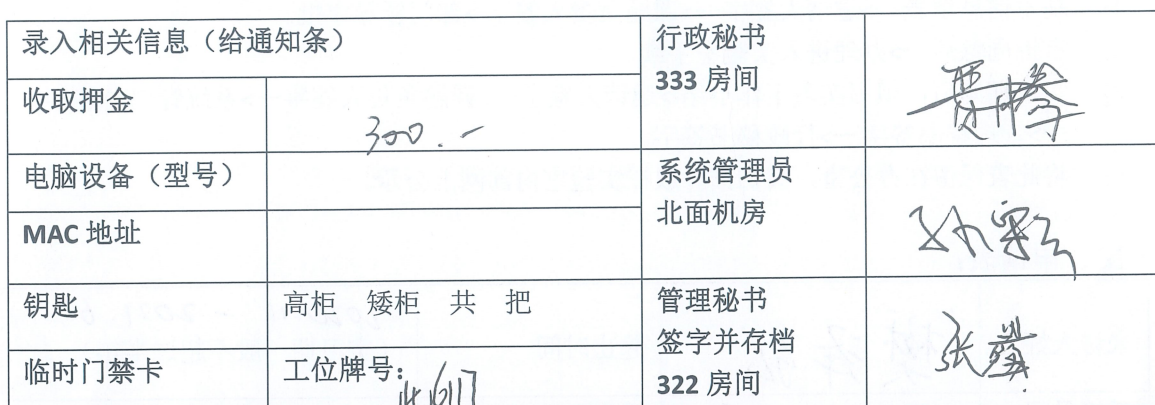 录入相关信息（给通知条）
行政秘书
333 房间
收取押金
300.-
电脑设备（型号）
系统管理员
北面机房
MAC 地址
钥匙
高柜 矮柜 共 把
管理秘书
签字并存档
322 房间
临时门禁卡
工位牌号：
张